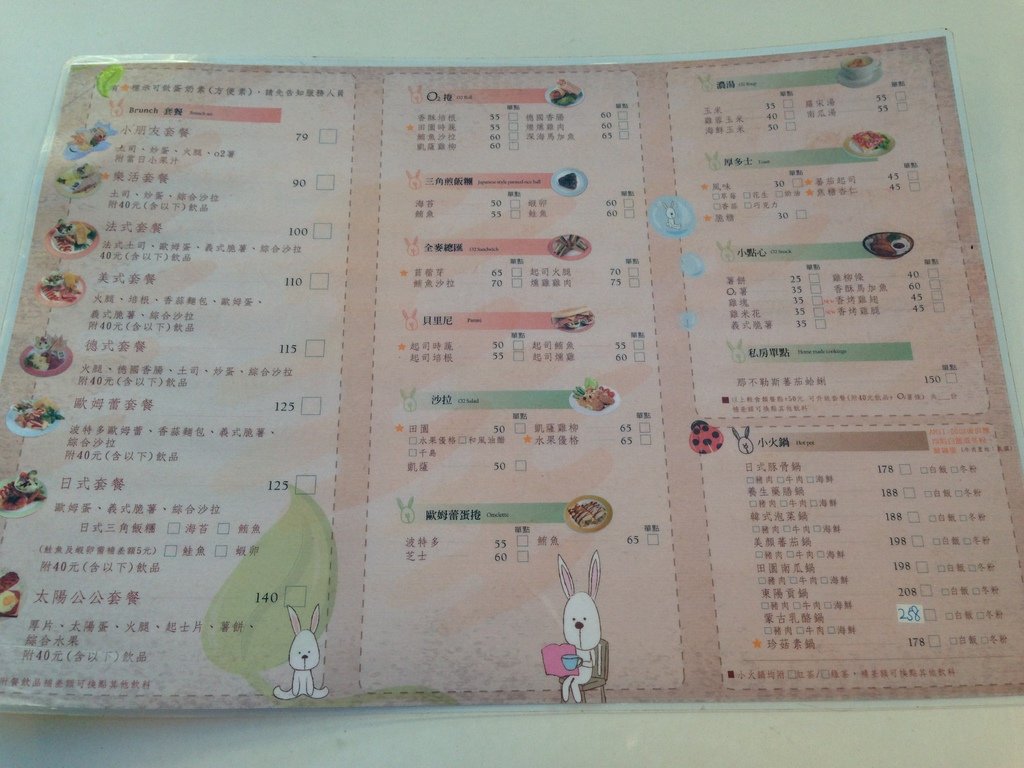 有★標示可做蛋奶素(方便素),請先告知服務人員
Brunch 套餐
小朋友套餐 79
土司、炒蛋、火腿、o2薯
附當日小果汁
★樂活套餐 90
土司、炒蛋、綜合沙拉
附40元(含以下)飲品
法式套餐 100
法式土司、歐姆蛋、義式脆薯、綜合沙拉
40元(含以下)飲品
美式套餐 110
火腿、培根、香蒜麵包、歐姆蛋、
義式脆薯、綜合沙拉
附40元(含以下)飲品
德式套餐 115
火腿、德國香腸、土司、炒蛋、綜合沙拉
附40元(含以下)飲品
歐姆蕾套餐 125
波特多歐姆蕾、香蒜麵包、義式脆薯、
綜合沙拉
附40元(含以下)飲品
日式套餐 125
歐姆蛋、義式脆薯、綜合沙拉
日式三角飯糰 □海苔 □鮪魚
(鮭魚及蝦卵需補差額5元) □鮭魚 □蝦卵
附40元(含以下)飲品
太陽公公套餐 140
厚片、太陽蛋、火腿、起士片、薯餅、
綜合水果
附40元(含以下)飲品
附餐飲品補差額可換點其他飲料
O2 捲 O2 Roll
單點 單點
香酥培根 55 德國香腸 60
★田園時蔬 55 燻燻雞肉 60
鮪魚沙拉 60 深海馬加魚 65
凱薩雞柳 60
三角煎飯糰 Japanese style panned rice ball
單點 單點
海苔 50 蝦卵 60
鮪魚 55 鮭魚 60
全麥總匯 O2 Sandwich
單點 單點
★苜蓿芽 65 起司火腿 70
鮪魚沙拉 70 燻雞雞肉 75
貝里尼 Panini
單點 單點
★起司時蔬 50 起司鮪魚 55
起司培根 55 起司燻雞 60
沙拉 O2 Salad
單點 單點
★田園 50 凱薩雞柳 65
□水果優格□和風油醋 ★水果優格 65
□千島
凱薩 50
歐姆蕾蛋捲 Omelette
單點 單點
波特多 55 鮪魚 65
芝士 60
濃湯 O2 Soup
單點 單點
玉米 35 羅宋湯 55
雞蓉玉米 40 南瓜湯 55
海鮮玉米 50
厚多士 Toast
單點 單點
★風味 30 ★蕃茄起司 45
□草莓 □花生 □奶油 ★焦糖杏仁 45
□香蒜 □巧克力
★脆糖 30
小點心 O2 Snack
單點 單點
薯餅 25 雞柳條 40
O2薯 35 香酥馬加魚 60
雞塊 35 香烤雞翅 45
雞米花 35 香烤雞腿 45
義式脆薯 35
私房單點 Home made cookings
單點
那不勒斯蕃茄蛤蜊 150
小火鍋 Hot pot
日式豚骨鍋 178 □白飯 □冬粉
□豬肉 □牛肉 □海鮮
養生藥膳鍋 188 □白飯 □冬粉
□豬肉 □牛肉 □海鮮
韓式泡菜鍋 188 □白飯 □冬粉
□豬肉 □牛肉 □海鮮
美顏蕃茄鍋 198 □白飯 □冬粉
□豬肉 □牛肉 □海鮮
田園南瓜鍋 198 □白飯 □冬粉
□豬肉 □牛肉 □海鮮
東陽貢鍋 208 □白飯 □冬粉
□豬肉 □牛肉 □海鮮
蒙古乳酪鍋 258 □白飯 □冬粉
□豬肉 □牛肉 □海鮮
★珍菇素鍋 178 □白飯 □冬粉
■小火鍋均附 □紅茶/□綠茶,補差額可換點其他飲料